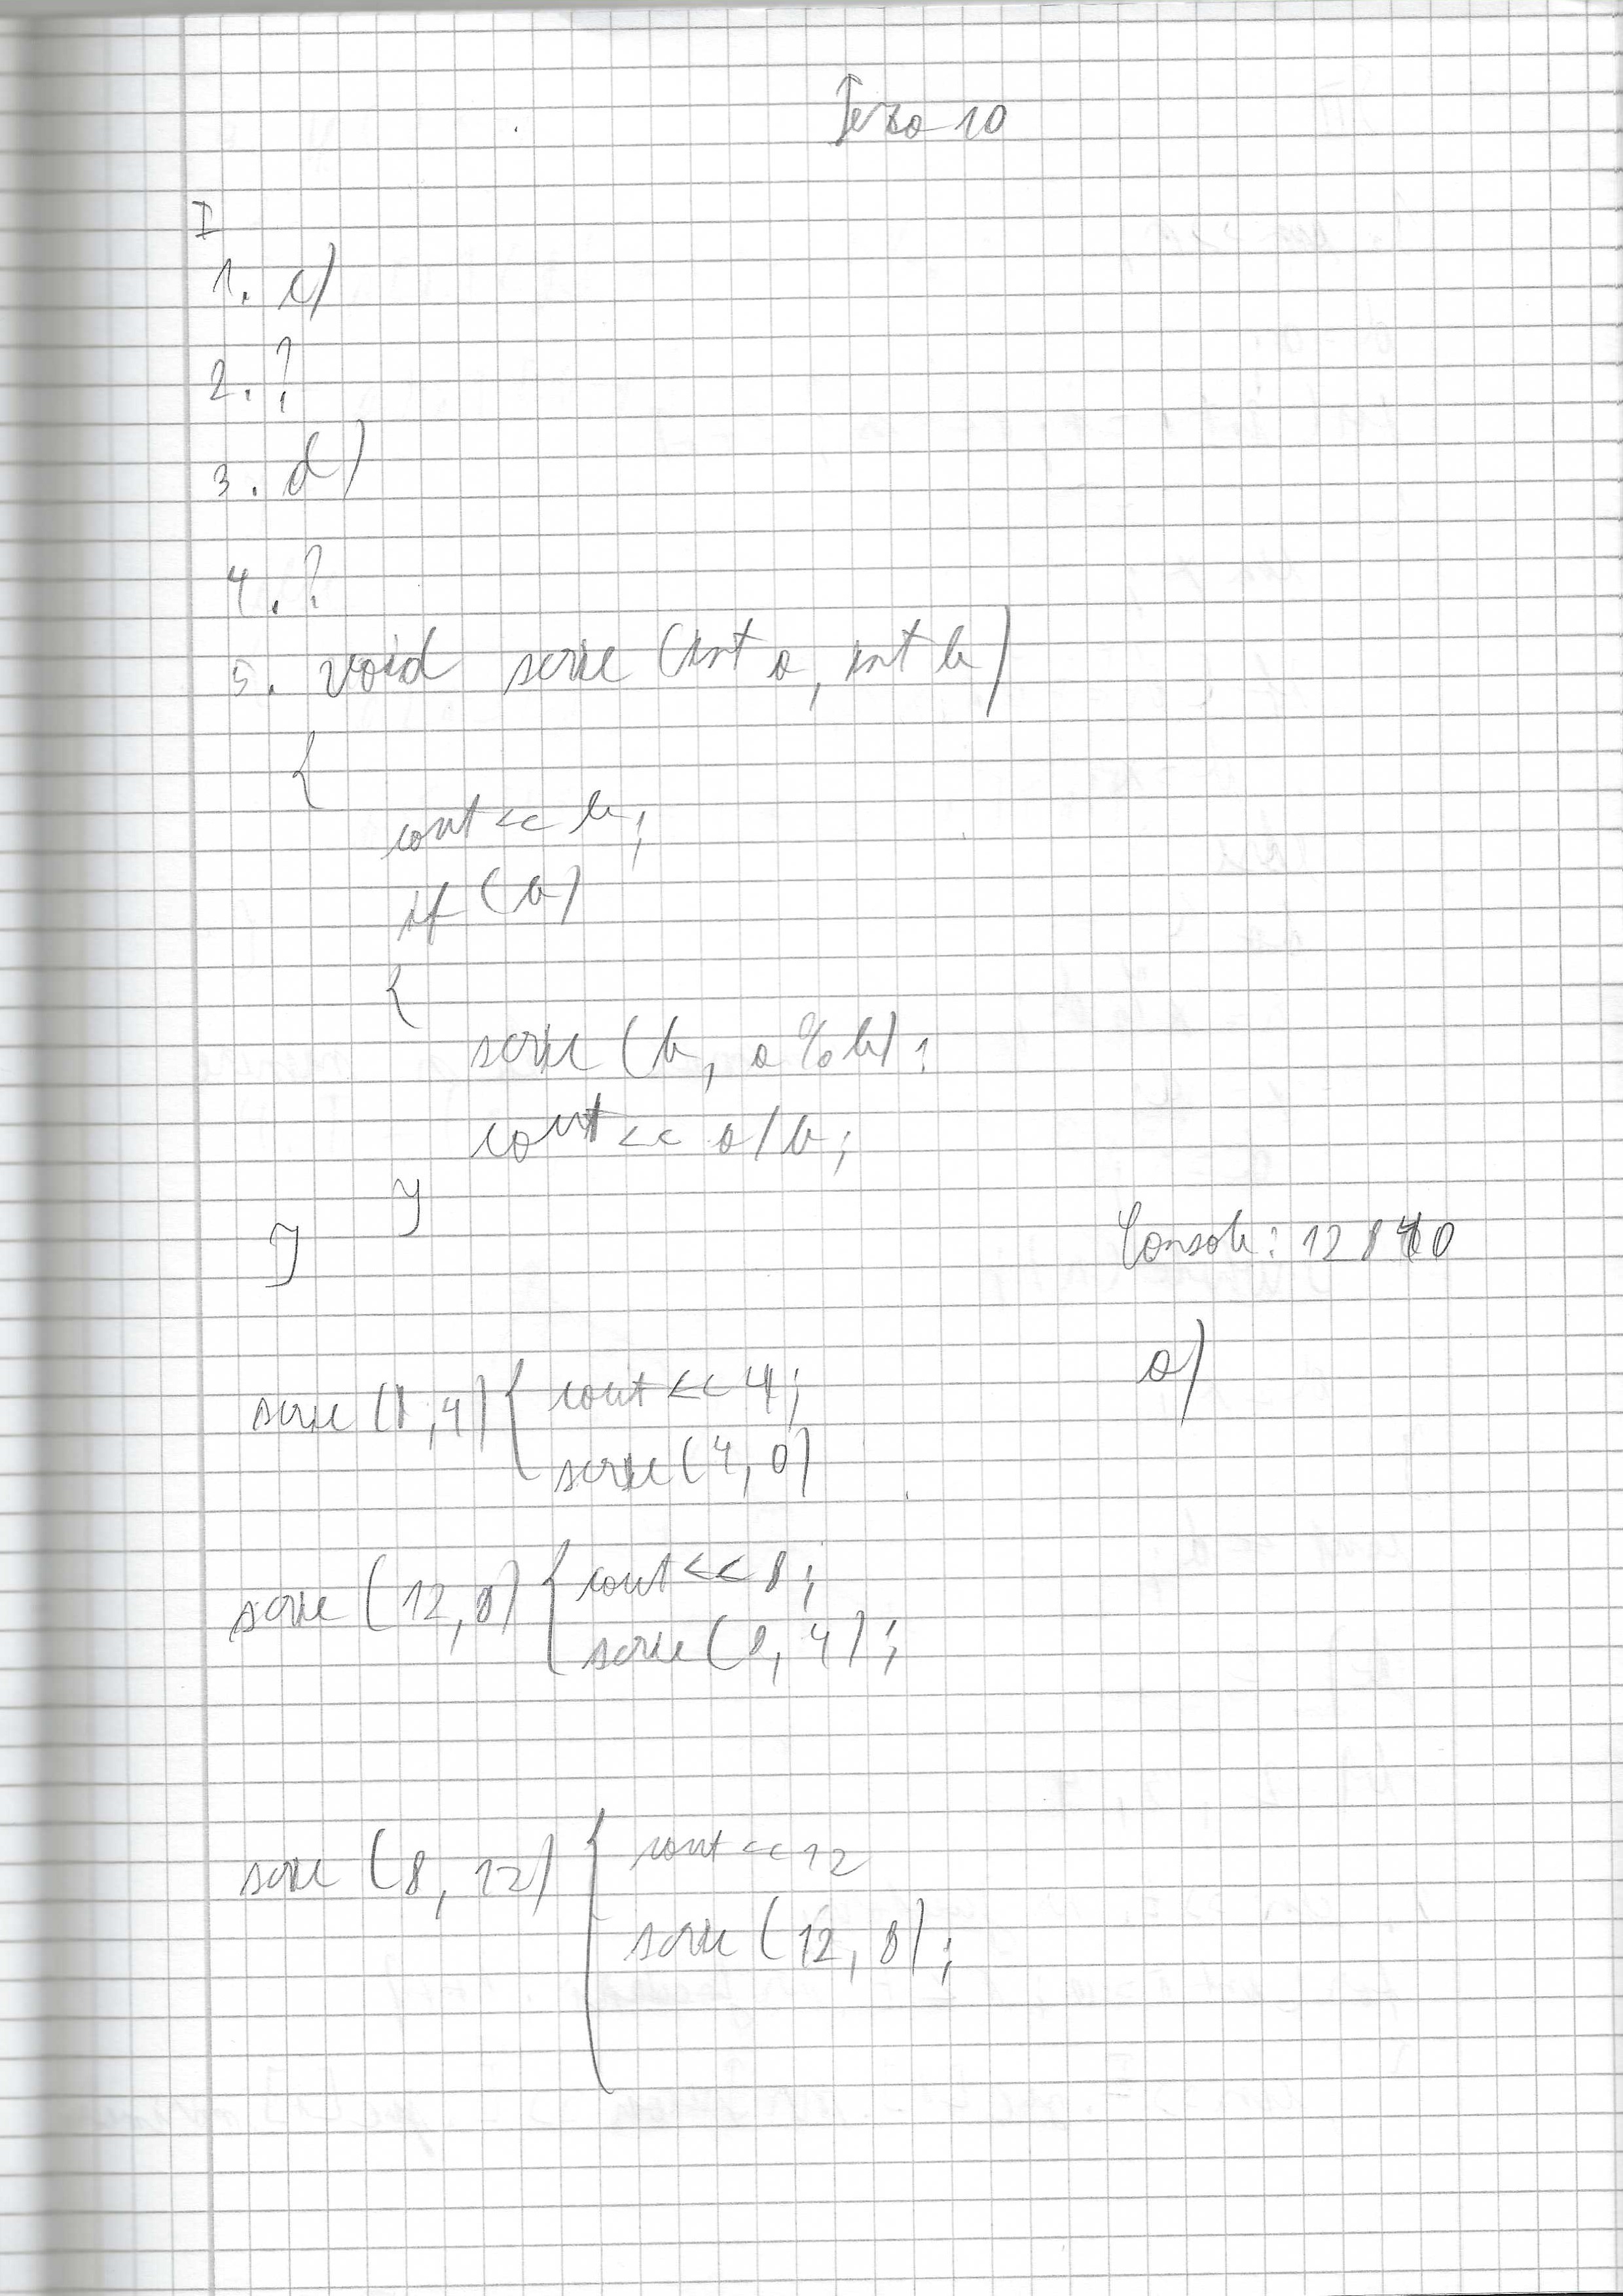 Teza 10
I
1. c)
2. ?
3. d)
4. ?
5. void scrie (int a, int b)
{
cout << b;
if (b)
{
scrie (b, a % b);
cout << a/b;
}
}
Consola: 12 8 4 0
a)
scrie (8,4) { cout << 4;
scrie (4, 0)
scrie (12,8) { cout << 8;
scrie (8, 4);
scrie (8, 12) { cout << 12
scrie (12, 8);